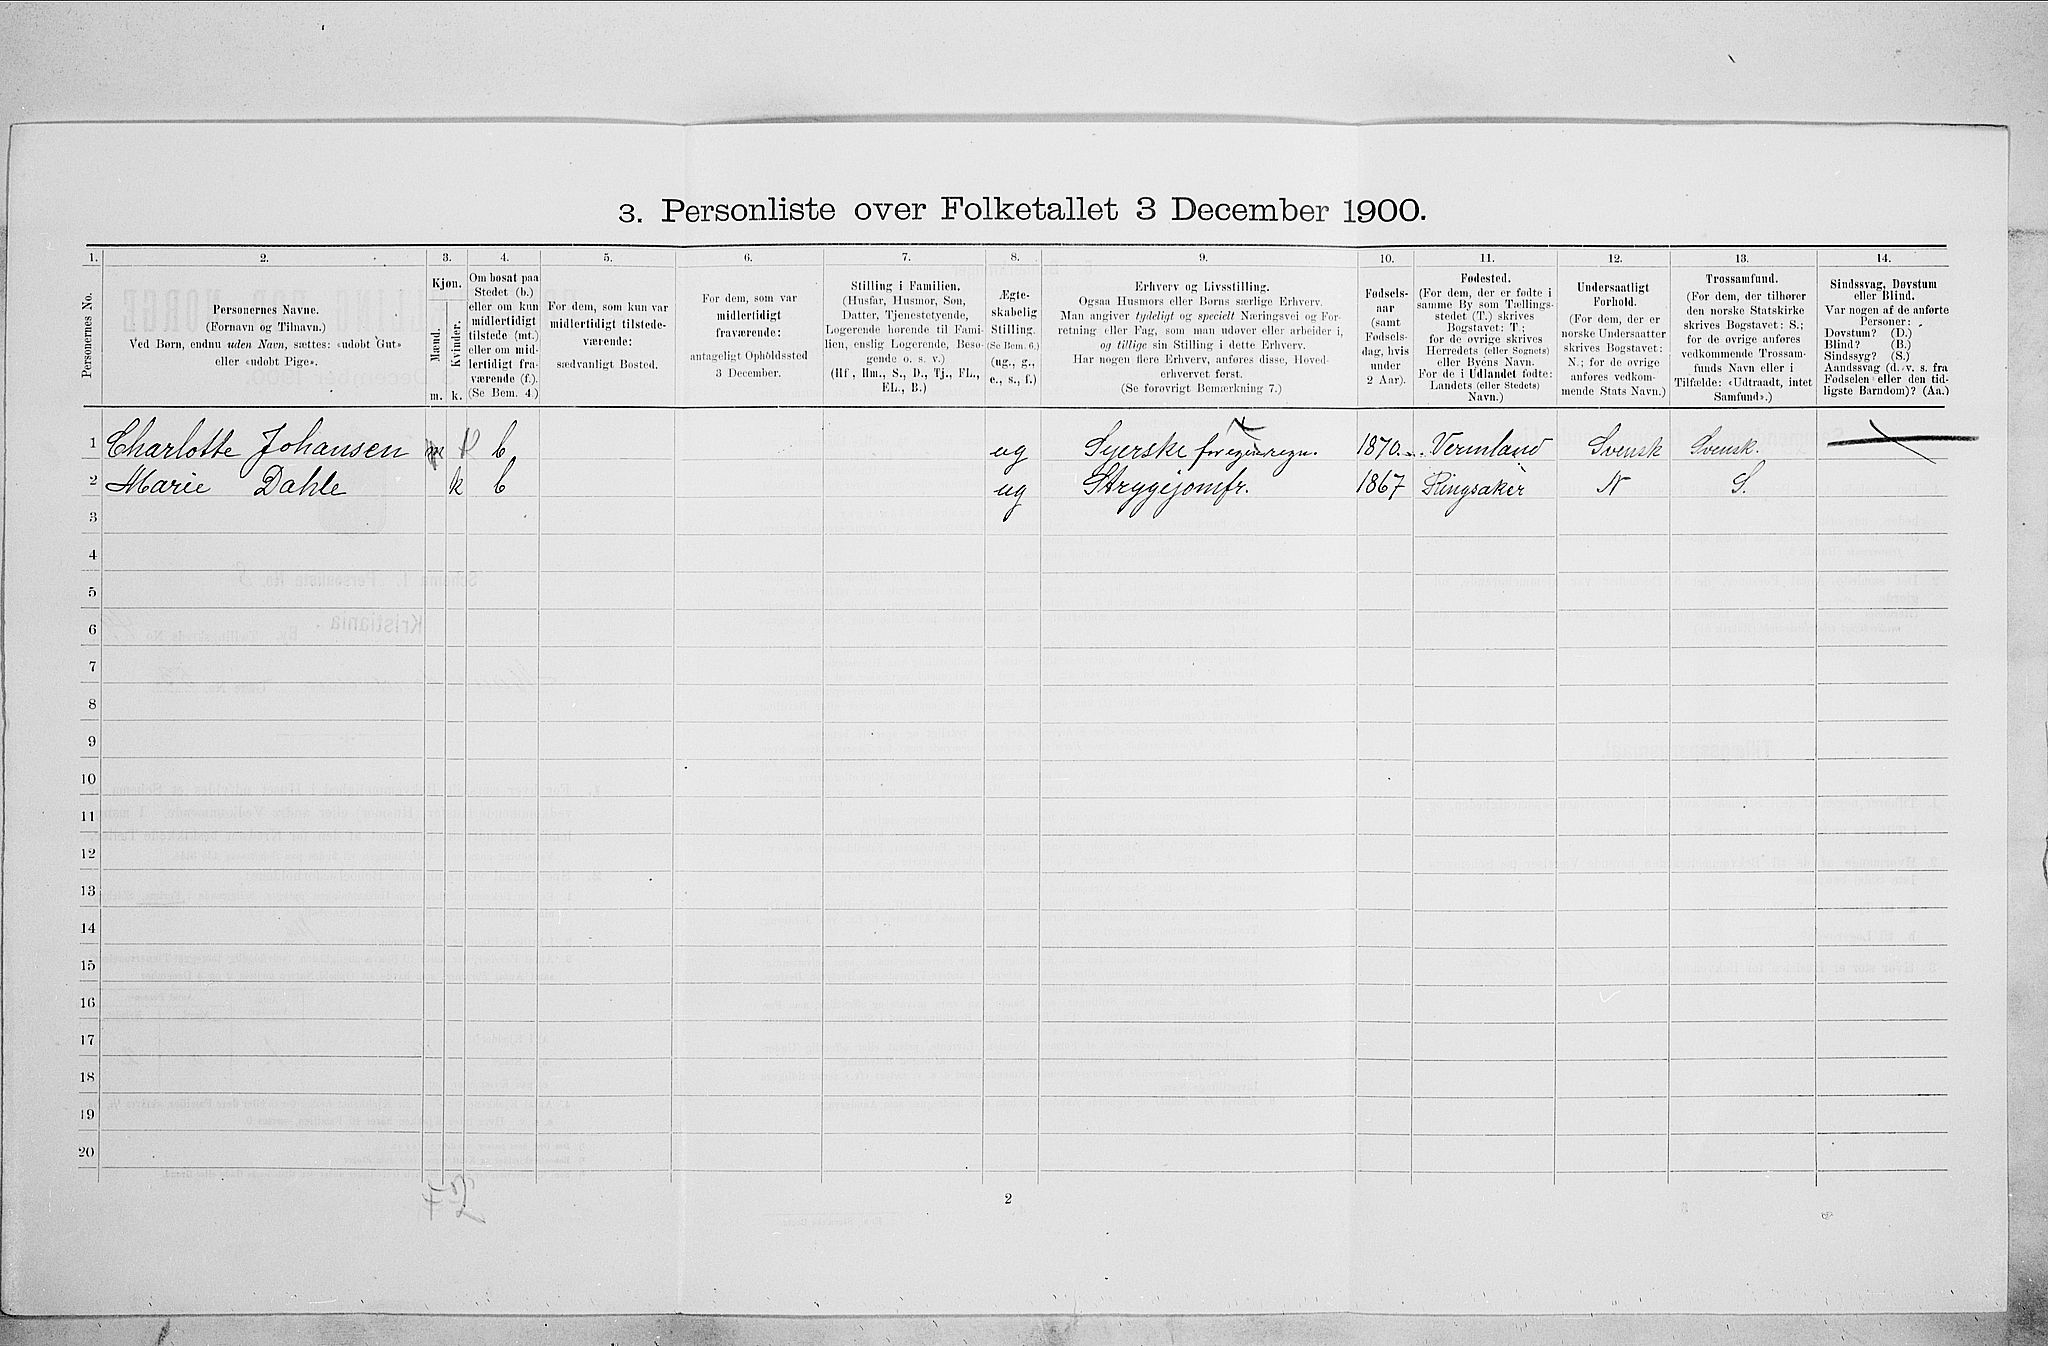 3. Personliste over Folketallet 3 December 1900.
1. 2. 3. 4. 5. 6. 7. 8. 9. 10. 11. 12. 13. 14.
Personernes No.
Personernes Navne.
(Fornavn og Tilnavn.)
Ved Børn, endnu uden Navn, sættes: «udobt Gut»
eller «udobt Pige».
Kjøn.
Mænd.
Kvinder.
m. k.
Om bosat paa
Stedet (b.)
eller om kun
midlertidigt
tilstede (mt.)
eller om mid-
lertidigt fra-
værende (f.).
(Se Bem. 4.)
For dem, som kun var
midlertidigt tilstede-
værende:
sædvanligt Bosted.
For dem, som var
midlertidigt
fraværende:
antageligt Opholdssted
3 December.
Stilling i Familien.
(Husfar, Husmor, Søn,
Datter, Tjenestetyende,
Logerende hørende til Fami-
lien, enslig Logerende, Besø-
gende o. s. v.)
(Hf, Hm., S., D., Tj., FL.,
EL., B.)
Ægte-
skabelig
Stilling.
(Se Bem. 6.)
(ug., g.,
e., s., f.)
Erhverv og Livsstilling.
Ogsaa Husmors eller Børns særlige Erhverv.
Man angiver tydeligt og specielt Næringsvei og For-
retning eller Fag, som man udover eller arbeider i,
og tillige sin Stilling i dette Erhverv.
Har nogen flere Erhverv, anføres disse, Hoved-
erhvervet først.
(Se forøvrigt Bemærkning 7.)
Fødsels-
aar
(samt
Fødsels-
dag, hvis
under
2 Aar).
Fødested.
(For dem, der er fødte i
samme By som Tællings-
stedet (T.) skrives
Bogstavet: T;
for de øvrige skrives
Herredets (eller Sognets)
eller Byens Navn.
For de i Udlandet fødte:
Landets (eller Stedets)
Navn.)
Undersaatligt
Forhold.
(For dem, der er
norske Undersaatter
skrives Bogstavet:
N.; for de øvrige
anføres vedkom-
mende Stats Navn.)
Trossamfund.
(For dem, der tilhører
den norske Statskirke
skrives Bogstavet: S.;
for de øvrige anføres
vedkommende Trossam-
funds Navn eller i
Tilfælde: «Udtraadt, intet
Samfund».)
Sindssvag, Døvstum
eller Blind.
Var nogen af de anførte
Personer:
Døvstum? (D.)
Blind? (B.)
Sindssyg? (S.)
Aandssvag (d. v. s. fra
Fødselen eller den tid-
ligste Barndom)? (Aa.)
1 Charlotte Johansen m b ug Syerske for egen regn. 1870 Vermland Svensk Svensk.
2 Marie Dahle k b ug Strygejomfr. 1867 Ringsaker N S.
3
4
5
6
7
8
9
10
11
12
13
14
15
16
17
18
19
20
2